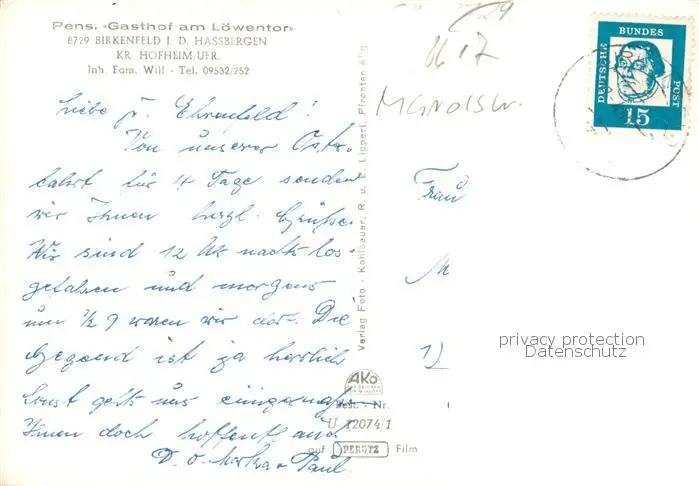 Pens. «Gasthof am Löwentor»
8729 BIRKENFELD I. D. HASSBERGEN
KR. HOFHEIM UFR.
Inh. Fam. Will - Tel. 09532/252
DEUTSCHE BUNDES POST
15
Liebe Fr. Ehrenfeld!
Von unserer Oster-
fahrt für 14 Tage senden
wir Ihnen herzl. Grüße.
Wir sind 12 Uhr nachts los-
gefahren und morgens
um ½ 9 waren wir dort. Die
Gegend ist ja herrlich
Sonst geht's uns
Ihnen doch hoffentl. auch
Paul
Frau
M
Verlag Foto - Kohlbauer, R. u. E. Lippert, Pfronten Allg.
AKO
Best.-Nr.
U 12074/1
auf PERUTZ Film
privacy protection
Datenschutz